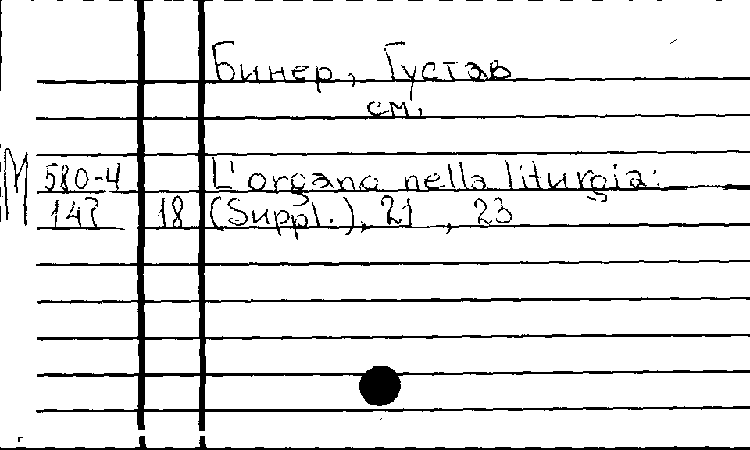 Бинер, Густав
см.
М 580-4 L'organo nella liturgia:
147 18 (Suppl.), 21 , 23